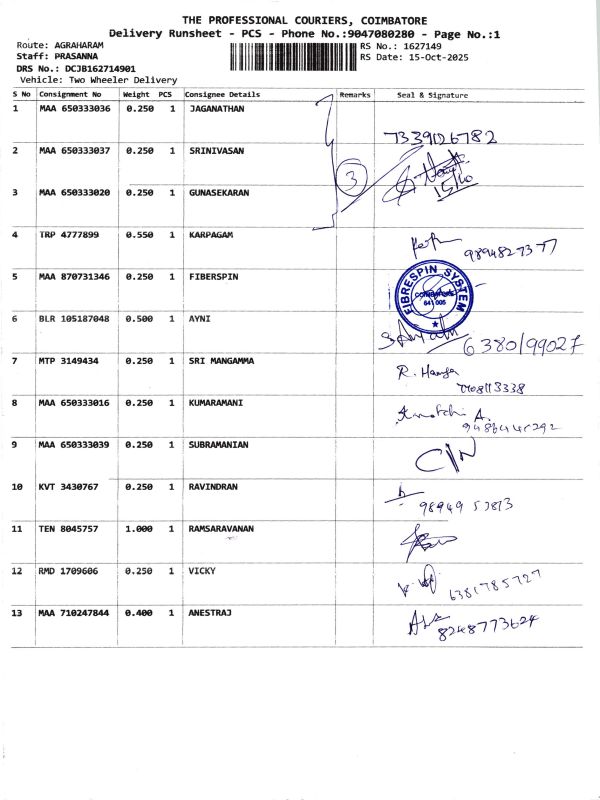 THE PROFESSIONAL COURIERS, COIMBATORE
Delivery Runsheet - PCS - Phone No.:9047080280 - Page No.:1
Route: AGRAHARAM
Staff: PRASANNA
DRS No.: DCJB162714901
Vehicle: Two Wheeler Delivery
RS No.: 1627149
RS Date: 15-Oct-2025
S No Consignment No Weight PCS Consignee Details Remarks Seal & Signature
1 MAA 650333036 0.250 1 JAGANATHAN
7339126782
2 MAA 650333037 0.250 1 SRINIVASAN
3
15/10
3 MAA 650333020 0.250 1 GUNASEKARAN
4 TRP 4777899 0.550 1 KARPAGAM
9894827377
5 MAA 870731346 0.250 1 FIBERSPIN
FIBRESPIN SYSTEM
COIMBATORE
641 005
6 BLR 105187048 0.500 1 AYNI
6380199027
7 MTP 3149434 0.250 1 SRI MANGAMMA
R.
8 MAA 650333016 0.250 1 KUMARAMANI
A.
9 MAA 650333039 0.250 1 SUBRAMANIAN
10 KVT 3430767 0.250 1 RAVINDRAN
98949 53813
11 TEN 8045757 1.000 1 RAMSARAVANAN
12 RMD 1709606 0.250 1 VICKY
6381785727
13 MAA 710247844 0.400 1 ANESTRAJ
8248773624